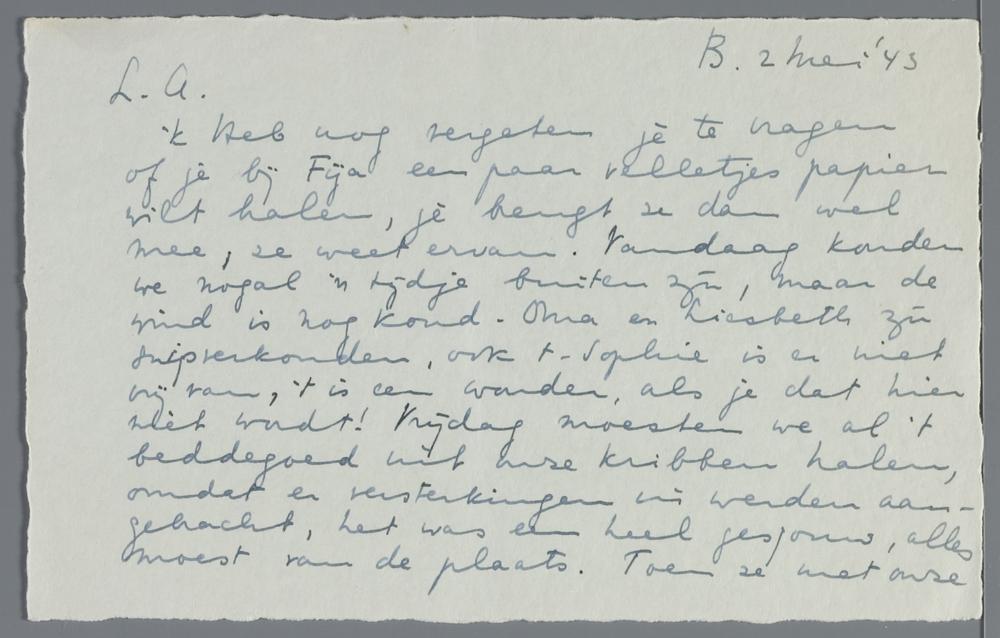 B. 2 Mei '43
L. A.
'k Heb nog vergeten je te vragen
of je bij Fija een paar velletjes papier
wilt halen, je bengt ze dan wel
mee, ze weet ervan. Vandaag konden
we nogal 'n tijdje buiten zijn, maar de
wind is nog koud. Oma en Liesbeth zijn
snipverkouden, ook t. Sophie is er niet
vrij van, 't is een wonder, als je dat hier
niet wordt! Vrijdag moesten we al 't
beddegoed uit onze kribben halen,
omdat er versterkingen in werden aan-
gebracht, het was een heel gesjouw, alles
moest van de plaats. Toen ze met onze